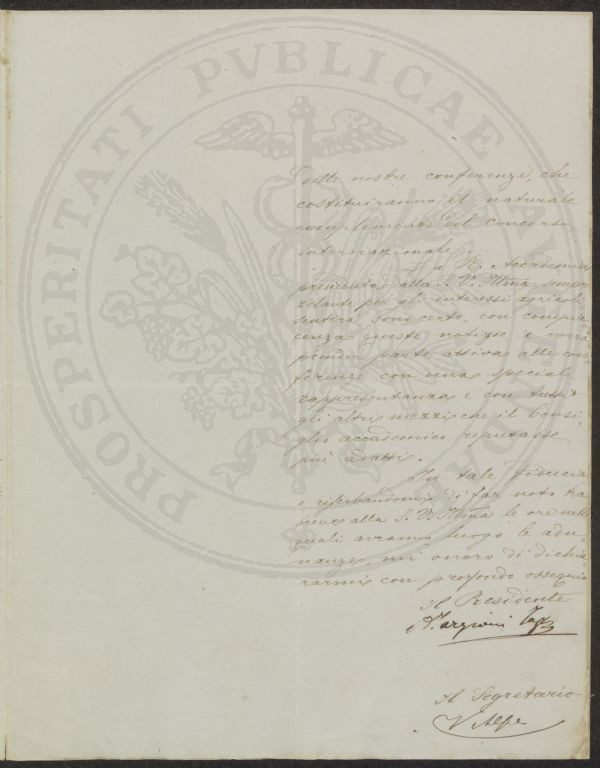 PROSPERITATI PVBLICAE
delle nostre conferenze, che
costituiranno il naturale
complemento del concorso
internazionale.
La R. Accademia
presieduta dalla S. V. Illma, sempre
zelante per gli interessi agricoli
sentirà sono certo, con compia-
cenza queste notizie e vorrà
prender parte attiva alle con-
ferenze con una speciale
rappresentanza e con tutti
gli altri mezzi che il Consi-
glio accademico reputasse
più adatti.
In tale fiducia
e riserbandomi di far noto fra
breve alla S. V. Illma le ore nelle
quali avranno luogo le adu-
nanze, mi onoro di dichia-
rarmi con profondo ossequio
Il Presidente
A. Targioni Tozz
Il Segretario
V. Alpe